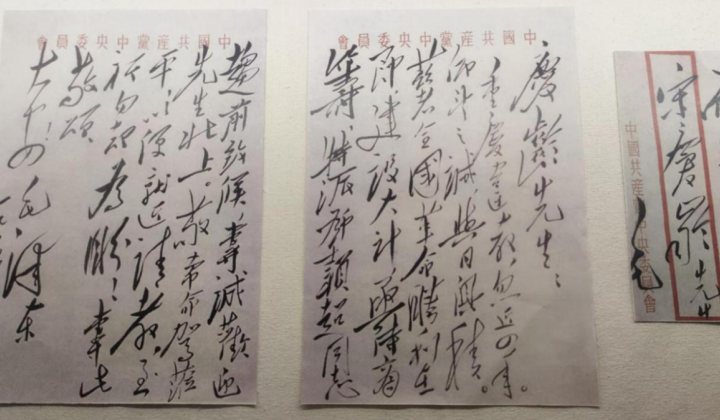 中國共産黨中央委員會
慶齡先生：
重慶違教，忽近四年。
仰望之誠，與日俱積。
茲者全國革命勝利在
即，建設大計，亟待商
籌，特派鄧穎超同志
中國共産黨中央委員會
趨前致候，專誠歡迎
先生北上。敬希命駕蒞
平，以便就近請教，至
祈勿却為盼！專此
敬頌
大安！毛澤東
宋慶齡先生
中國共産
中央委員會
毛